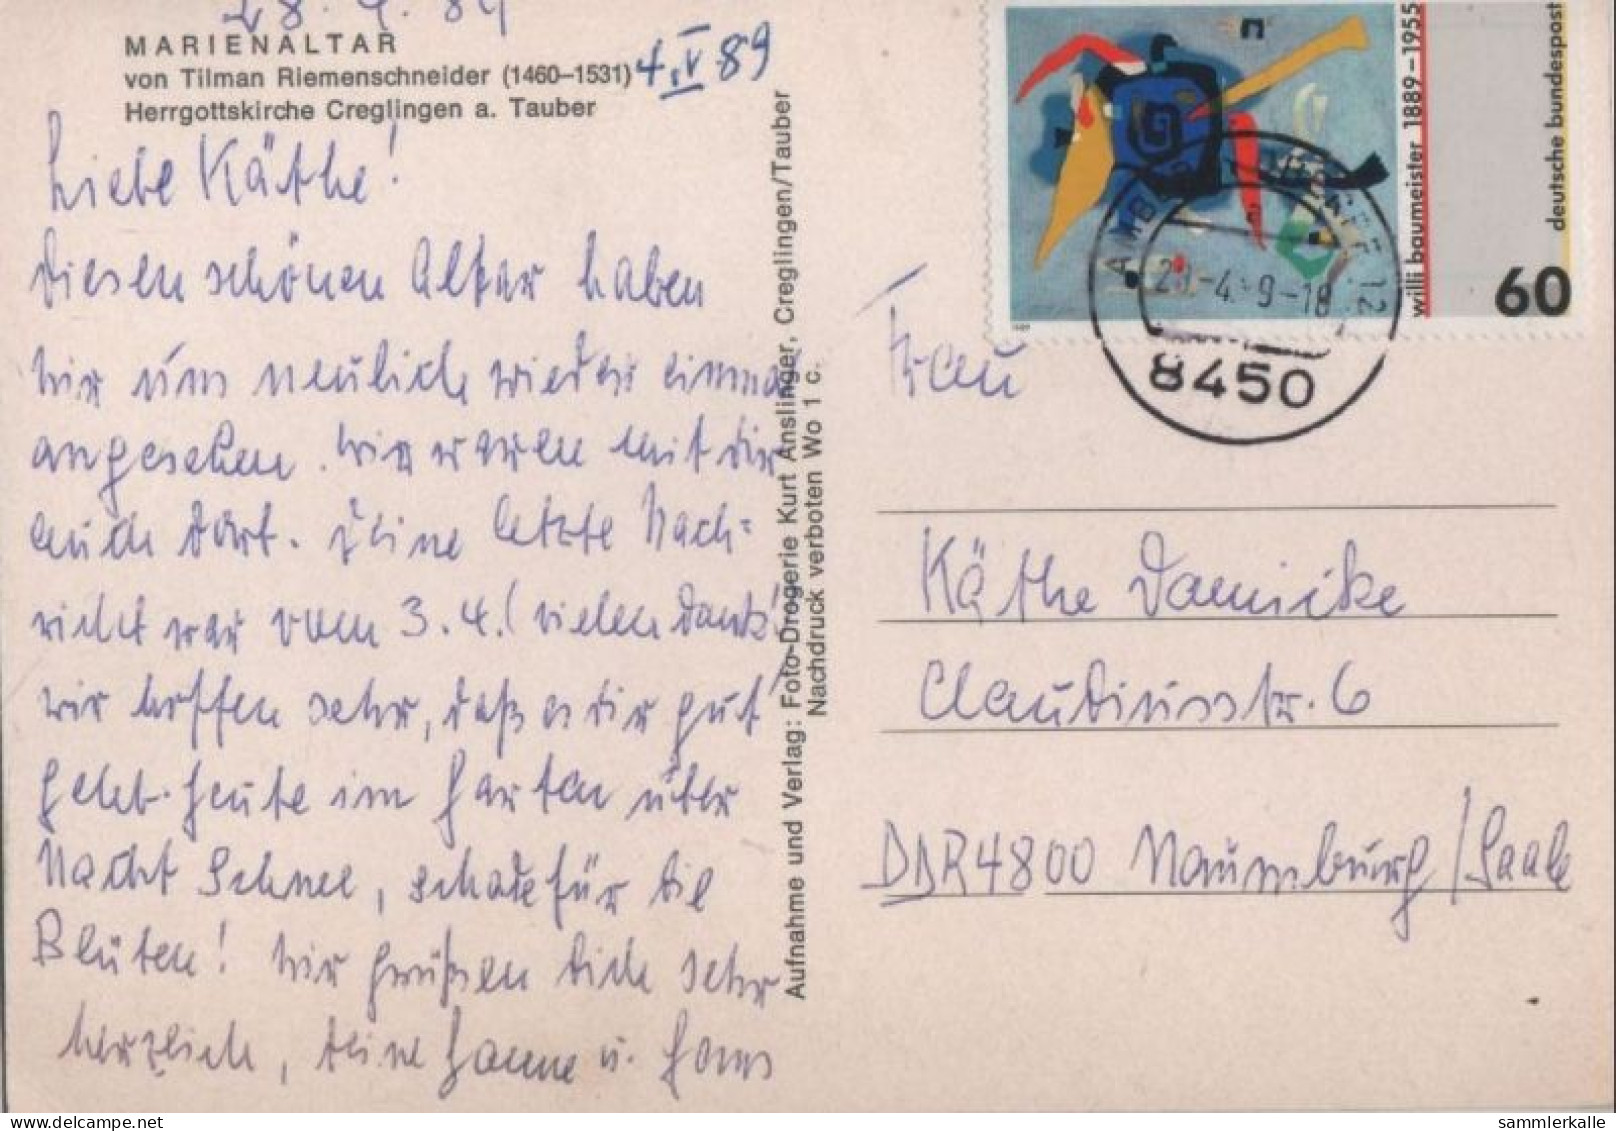 28.4.89
MARIENALTAR
von Tilman Riemenschneider (1460–1531)
Herrgottskirche Creglingen a. Tauber
4.V.89
Liebe Käthe!
Diesen schönen Altar haben
wir uns neulich wieder einmal
angesehen. Wir waren mit dir
auch dort. Deine letzte Nach=
richt war vom 3.4. (vielen Dank!
Wir hoffen sehr, daß es dir gut
geht. Heute im Garten über
Nacht Schnee, schade für die
Blüten! Wir grüßen dich sehr
herzlich, deine Hanne u. Hans
Aufnahme und Verlag: Foto-Drogerie Kurt Anslinger, Creglingen/Tauber
Nachdruck verboten Wo 1 c.
willi baumeister 1889–1955
deutsche bundespost
60
8450
Frau
Käthe Damicke
Claudiusstr. 6
DDR 4800 Naumburg/Saale
sammlerkalle